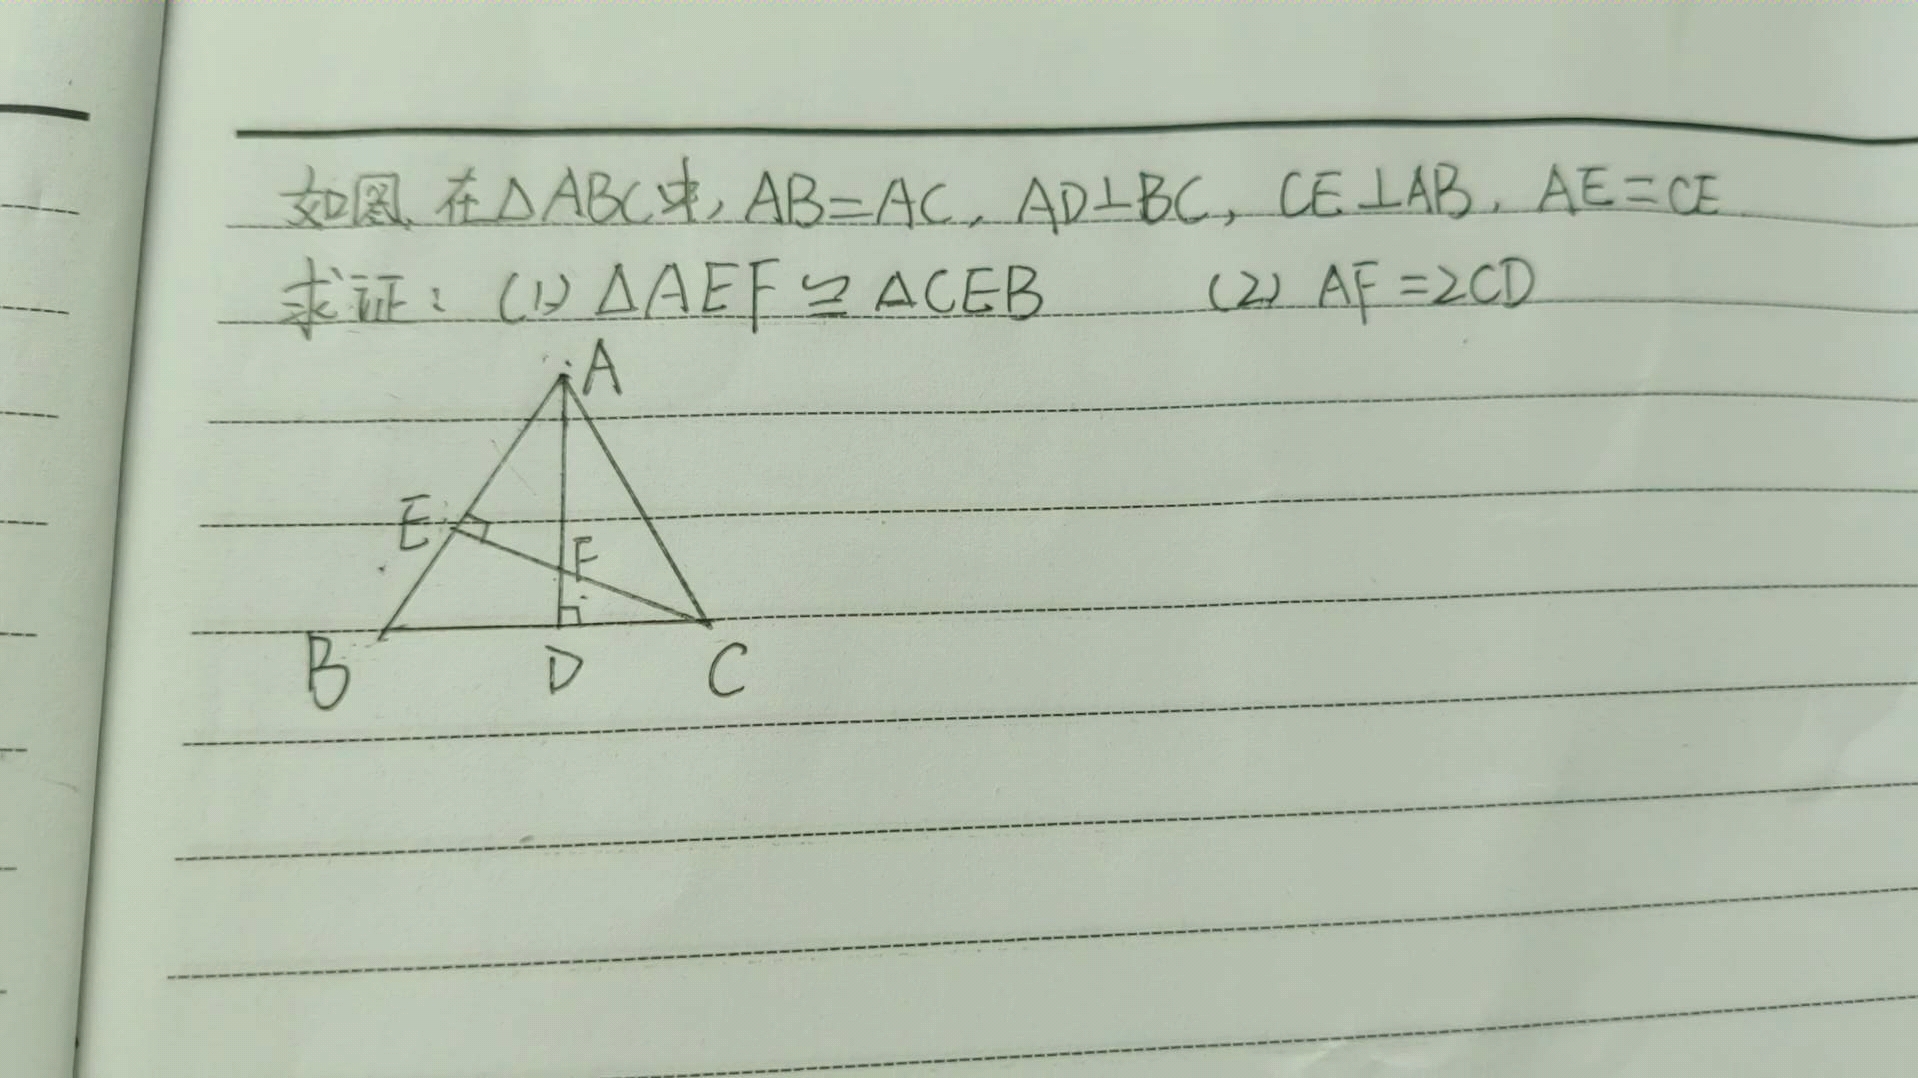 如图,在△ABC中,AB=AC,AD⊥BC,CE⊥AB,AE=CE
求证:(1)△AEF≌△CEB (2)AF=2CD
A
E
F
B
D
C